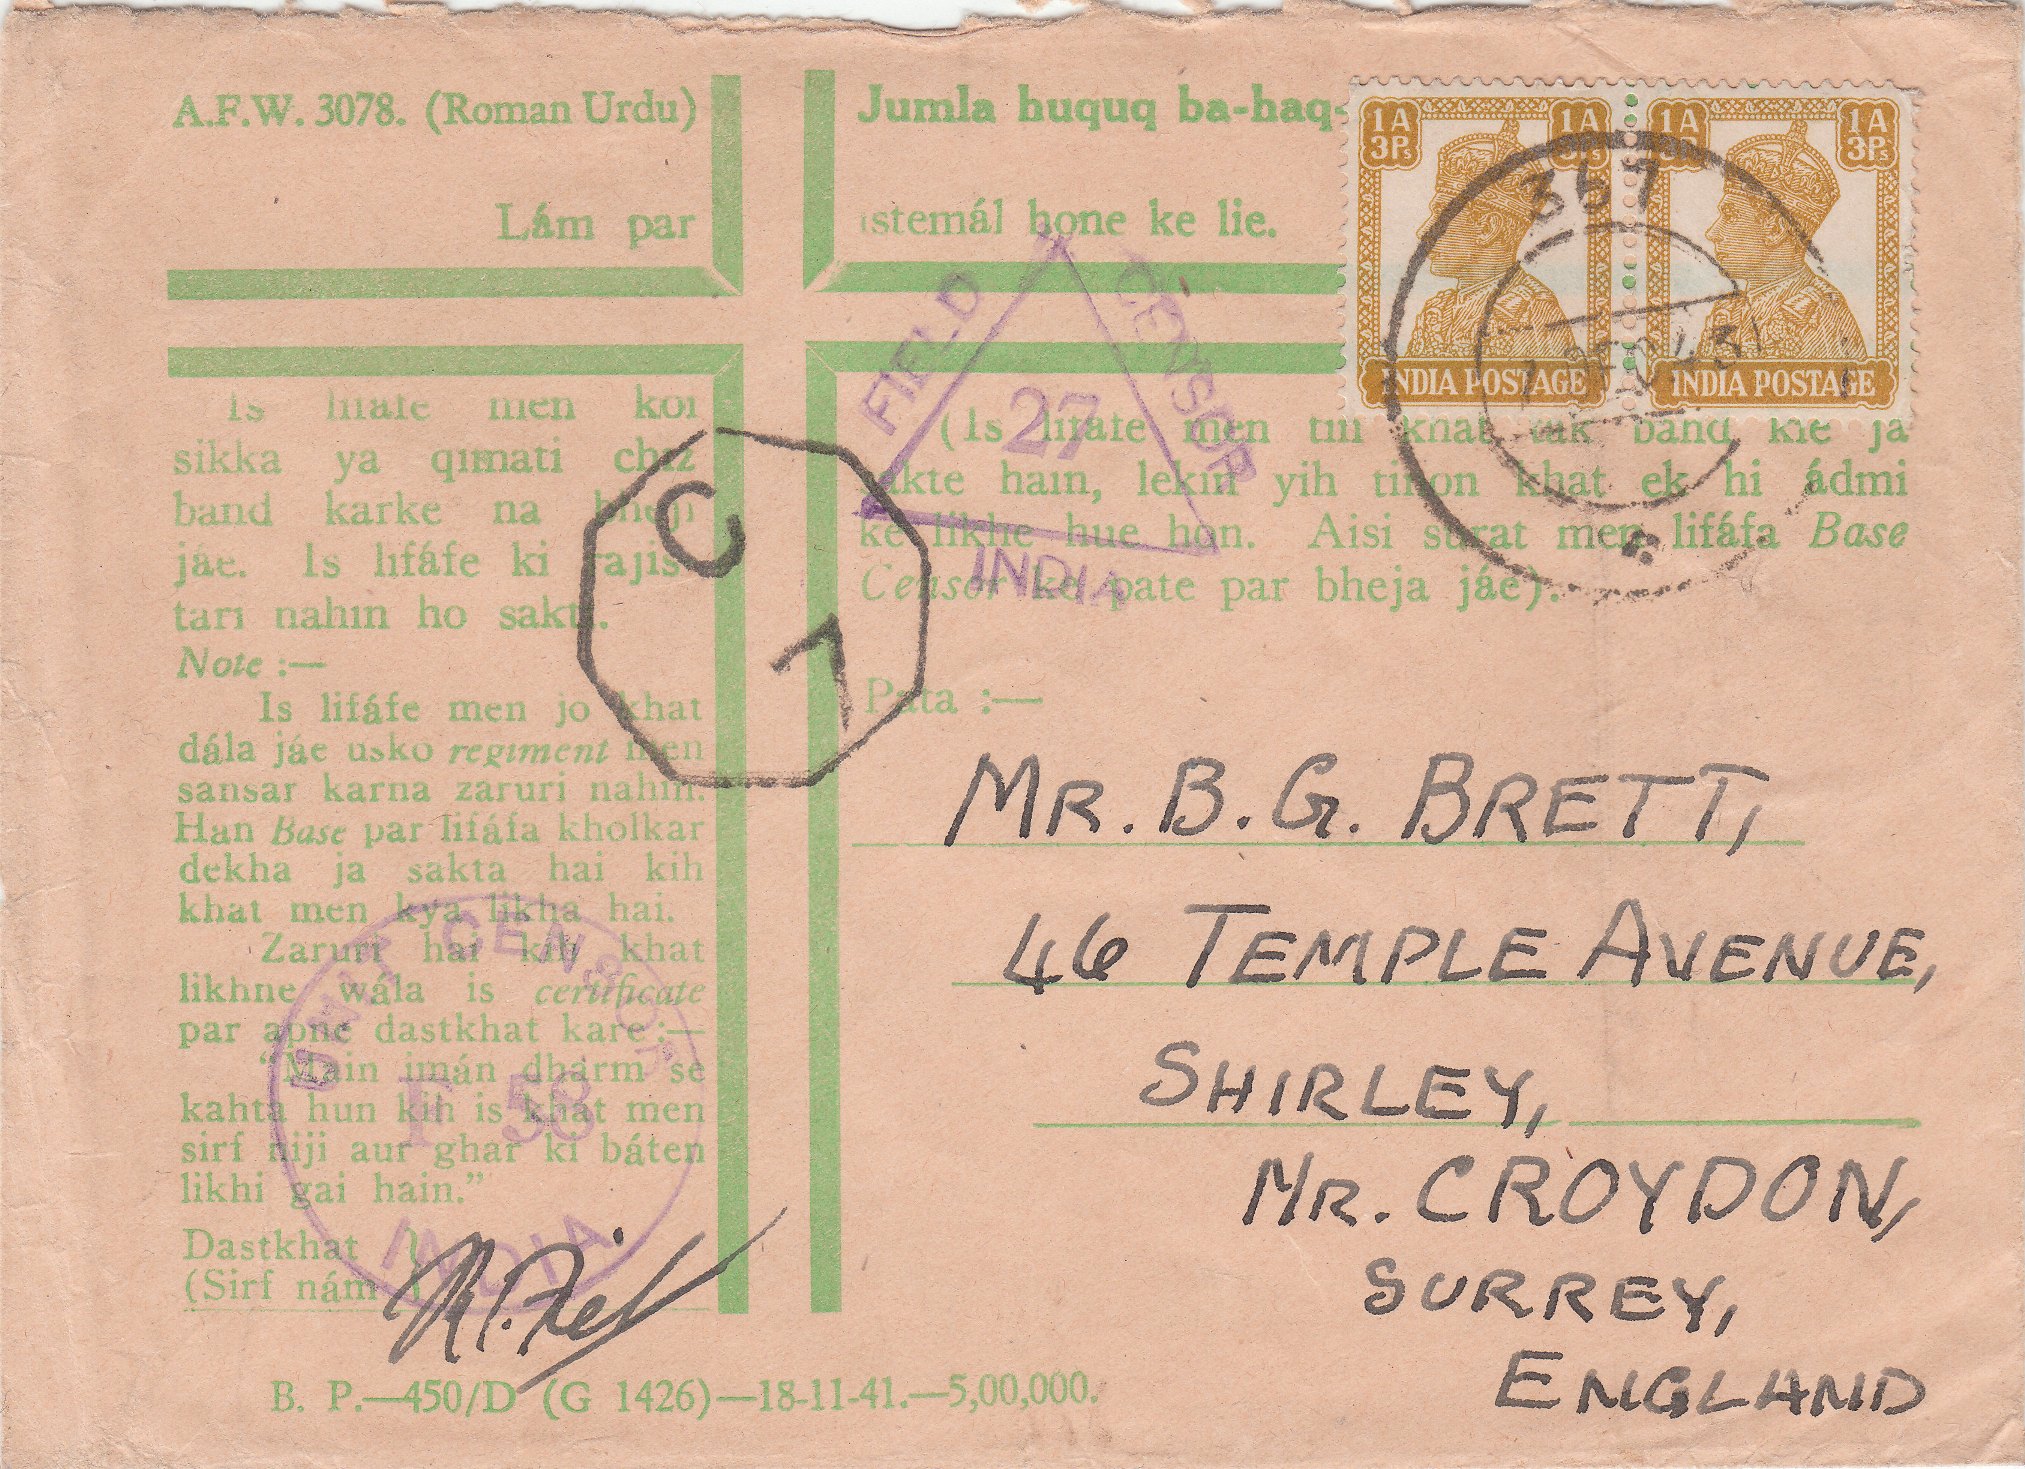 A.F.W. 3078. (Roman Urdu)
Lám par
Jumla huquq ba-haq-
istemál hone ke lie.
1A 3Ps 1A 3Ps
INDIA POSTAGE
1A 3Ps 1A 3Ps
INDIA POSTAGE
367
43
FIELD CENSOR
27
INDIA
Is lifáfe men koi
sikka ya qimati chiz
band karke na bheji
jáe. Is lifáfe ki rajis-
tari nahin ho sakti.
Note :—
Is lifáfe men jo khat
dála jáe usko regiment men
sansar karna zaruri nahin.
Han Base par lifáfa kholkar
dekha ja sakta hai kih
khat men kya likha hai.
Zaruri hai kih khat
likhne wála is certificate
par apne dastkhat kare :—
“Main imán dharm se
kahta hun kih is khat men
sirf niji aur ghar ki báten
likhi gai hain.”
Dastkhat }
(Sirf nám }
UNIT CENSOR
F 58
INDIA
C
7
(Is lifáfe men tin khat tak band kie ja
sakte hain, lekin yih tinon khat ek hi ádmi
ke likhe hue hon. Aisi surat men lifáfa Base
Censor ke pate par bheja jáe).
Pata :—
MR. B. G. BRETT,
46 TEMPLE AVENUE,
SHIRLEY,
NR. CROYDON,
SURREY,
ENGLAND
B. P.—450/D (G 1426)—18-11-41.—5,00,000.